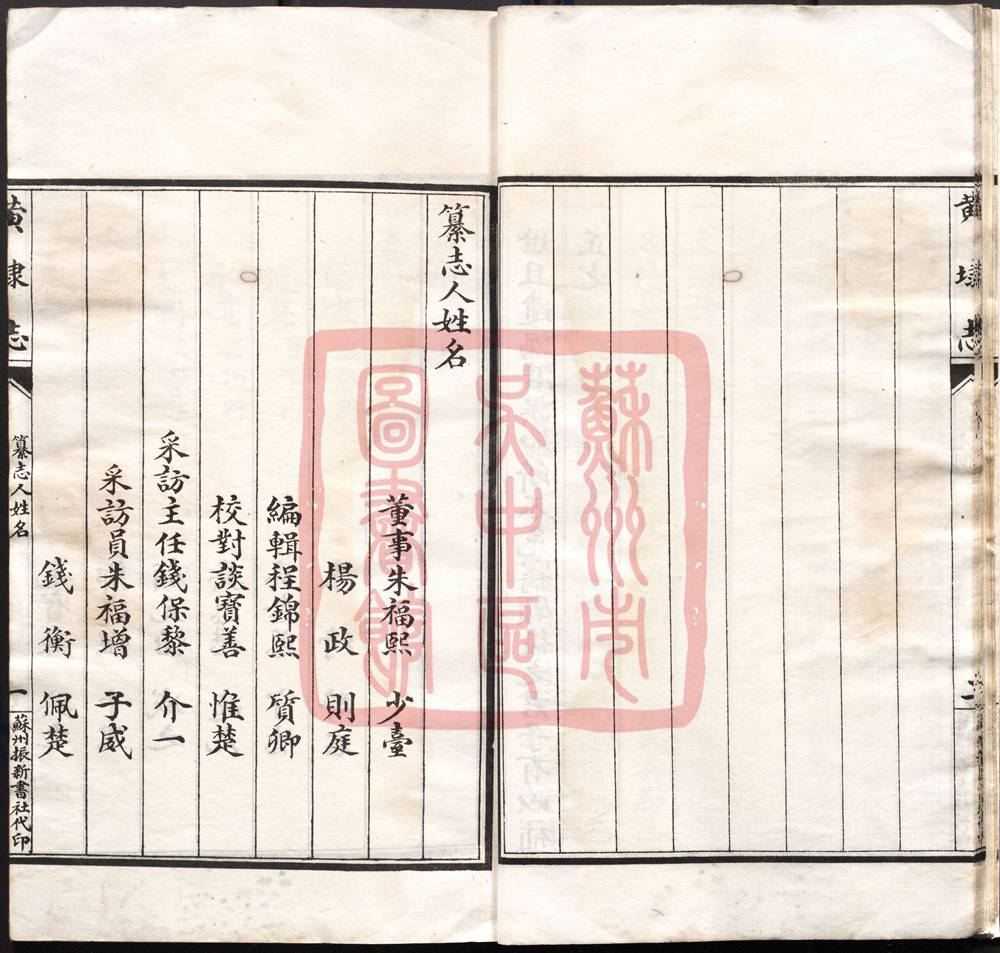 黃埭志
二
纂志人姓名
董事朱福熙 少臺
楊政 則庭
編輯程錦熙 質卿
校對談寶善 惟楚
采訪主任錢保黎 介一
采訪員朱福增 子威
錢衡 佩楚
黃埭志 纂志人姓名 一 蘇州振新書社代印
蘇州市
吳中區
圖書館